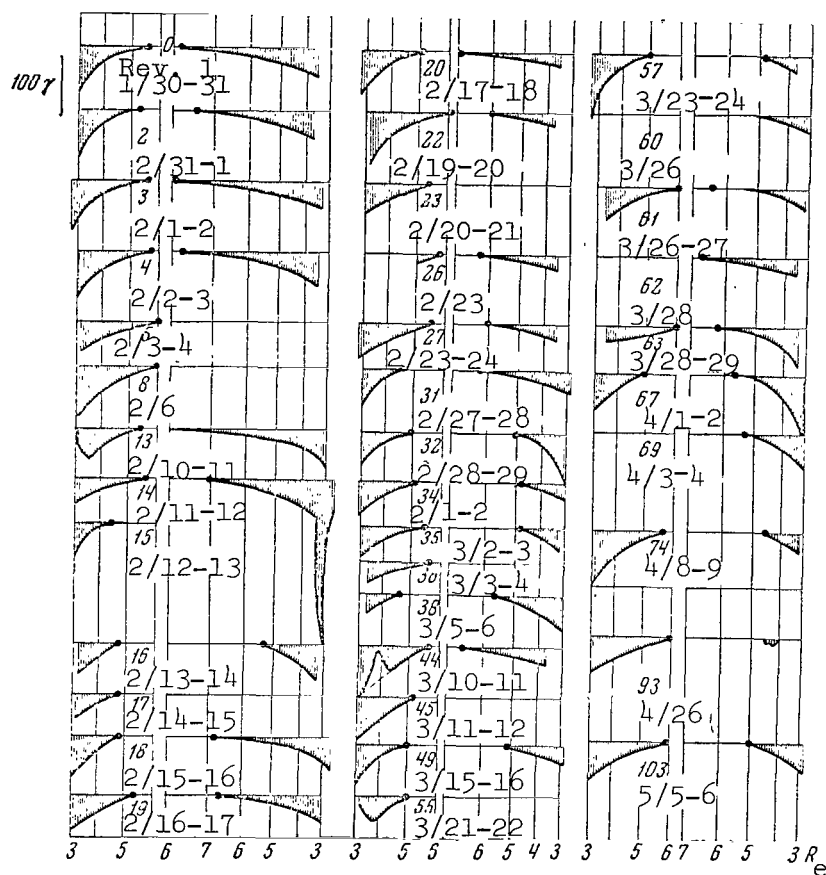 0
100 γ
Rev. 1
1/30-31
2
2/31-1
3
2/1-2
4
2/2-3
5
2/3-4
8
2/6
13
2/10-11
14
2/11-12
15
2/12-13
16
2/13-14
17
2/14-15
18
2/15-16
19
2/16-17
3 5 6 7 6 5 3
20
2/17-18
22
2/19-20
23
2/20-21
26
2/23
27
2/23-24
31
2/27-28
32
2/28-29
34
2/1-2
35
3/2-3
36
3/3-4
38
3/5-6
44
3/10-11
45
3/11-12
49
3/15-16
55
3/21-22
3 5 5 6 5 4 3
57
3/23-24
60
3/26
61
3/26-27
62
3/28
63
3/28-29
67
4/1-2
69
4/3-4
74
4/8-9
93
4/26
103
5/5-6
3 5 6 7 6 5 3 R e